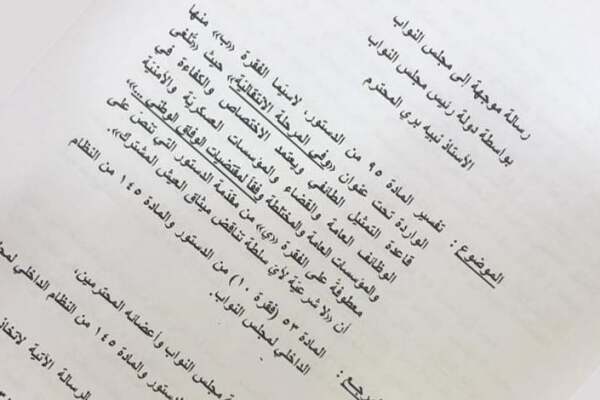 رسالة موجهة إلى مجلس النواب
بواسطة دولة رئيس مجلس النواب
الأستاذ نبيه بري المحترم
الموضوع : تفسير المادة ٩٥ من الدستور، لاسيما الفقرة «ب» منها
الواردة تحت عنوان «وفي المرحلة الانتقالية» حيث «تُلغى
قاعدة التمثيل الطائفي ويعتمد الاختصاص والكفاءة في
الوظائف العامة والقضاء والمؤسسات العسكرية والأمنية
والمؤسسات العامة والمختلطة وفقاً لمقتضيات الوفاق الوطني...»،
معطوفة على الفقرة «ي» من مقدمة الدستور التي تنص على
أن «لا شرعية لأي سلطة تناقض ميثاق العيش المشترك».
المادة ٥٣ (فقرة ١٠) من الدستور والمادة ١٤٥ من النظام
الداخلي لمجلس النواب.
مجلس النواب وأعضائه المحترمين،
والمادة ١٤٥ من النظام الداخلي
الرسالة الآتية